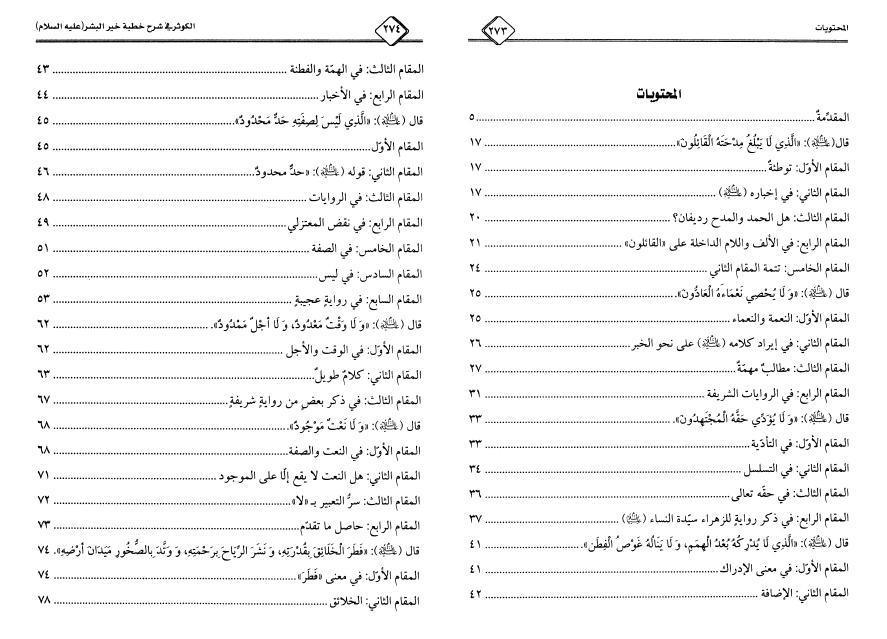 المحتويات
٢٧٣
المحتويات
المقدّمةُ ٥
قال (عليه السلام): «الَّذِي لَا يَبْلُغُ مِدْحَتَهُ الْقَائِلُونَ» ١٧
المقام الأوّل: توطئةٌ ١٧
المقام الثاني: في إخباره (عليه السلام) ١٧
المقام الثالث: هل الحمد والمدح رديفان؟ ٢٠
المقام الرابع: في الألف واللام الداخلة على «القائلون» ٢١
المقام الخامس: تتمة المقام الثاني ٢٤
قال (عليه السلام): «وَ لَا يُحْصِي نَعْمَاءَهُ الْعَادُّونَ». ٢٥
المقام الأوّل: النعمة والنعماء ٢٥
المقام الثاني: في إيراد كلامه (عليه السلام) على نحو الخبر ٢٦
المقام الثالث: مطالبٌ مهمّةٌ ٢٧
المقام الرابع: في الروايات الشريفة ٣١
قال (عليه السلام): «وَ لَا يُؤَدِّي حَقَّهُ الْمُجْتَهِدُونَ». ٣٣
المقام الأوّل: في التأدّية ٣٣
المقام الثاني: في التسلسل ٣٤
المقام الثالث: في حقّه تعالى ٣٦
المقام الرابع: في ذكر روايةٍ للزهراء سيّدة النساء (عليها السلام) ٣٧
قال (عليه السلام): «الَّذِي لَا يُدْرِكُهُ بُعْدُ الْهِمَمِ، وَ لَا يَنَالُهُ غَوْصُ الْفِطَنِ». ٤١
المقام الأوّل: في معنى الإدراك ٤١
المقام الثاني: الإضافة ٤٢
الكوثر في شرح خطبة خير البشر (عليه السلام)
٢٧٤
المقام الثالث: في الهمّة والفطنة ٤٣
المقام الرابع: في الأخبار ٤٤
قال (عليه السلام): «الَّذِي لَيْسَ لِصِفَتِهِ حَدٌّ مَحْدُودٌ». ٤٥
المقام الأوّل ٤٥
المقام الثاني: قوله (عليه السلام): «حدٌّ محدودٌ ٤٦
المقام الثالث: في الروايات ٤٨
المقام الرابع: في نقض المعتزلي ٤٩
المقام الخامس: في الصفة ٥١
المقام السادس: في ليس ٥٢
المقام السابع: في روايةٍ عجيبةٍ ٥٣
قال (عليه السلام): «وَ لَا وَقْتٌ مَعْدُودٌ، وَ لَا أجْلٌ مَمْدُودٌ». ٦٢
المقام الأوّل: في الوقت والأجل ٦٢
المقام الثاني: كلامٌ طويلٌ ٦٣
المقام الثالث: في ذكر بعضٍ من روايةٍ شريفةٍ ٦٧
قال (عليه السلام): «وَ لَا نَعْتٌ مَوْجُودٌ». ٦٨
المقام الأوّل: في النعت والصفة ٦٨
المقام الثاني: هل النعت لا يقع إلّا على الموجود ٧١
المقام الثالث: سرُّ التعبير بـ «لا» ٧٢
المقام الرابع: حاصل ما تقدّم ٧٣
قال (عليه السلام): «فَطَرَ الْخَلَائِقَ بِقُدْرَتِهِ، وَ نَشَرَ الرِّيَاحَ بِرَحْمَتِهِ، وَ وَتَّدَ بِالصُّخُورِ مَيَدَانَ أَرْضِهِ». ٧٤
المقام الأوّل: في معنى «فَطَرَ» ٧٤
المقام الثاني: الخلائق ٧٨